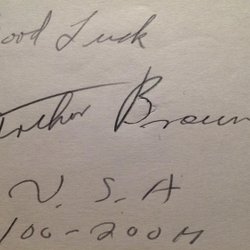 ood Luck
Arthur Brown
U.S.A
100-200M